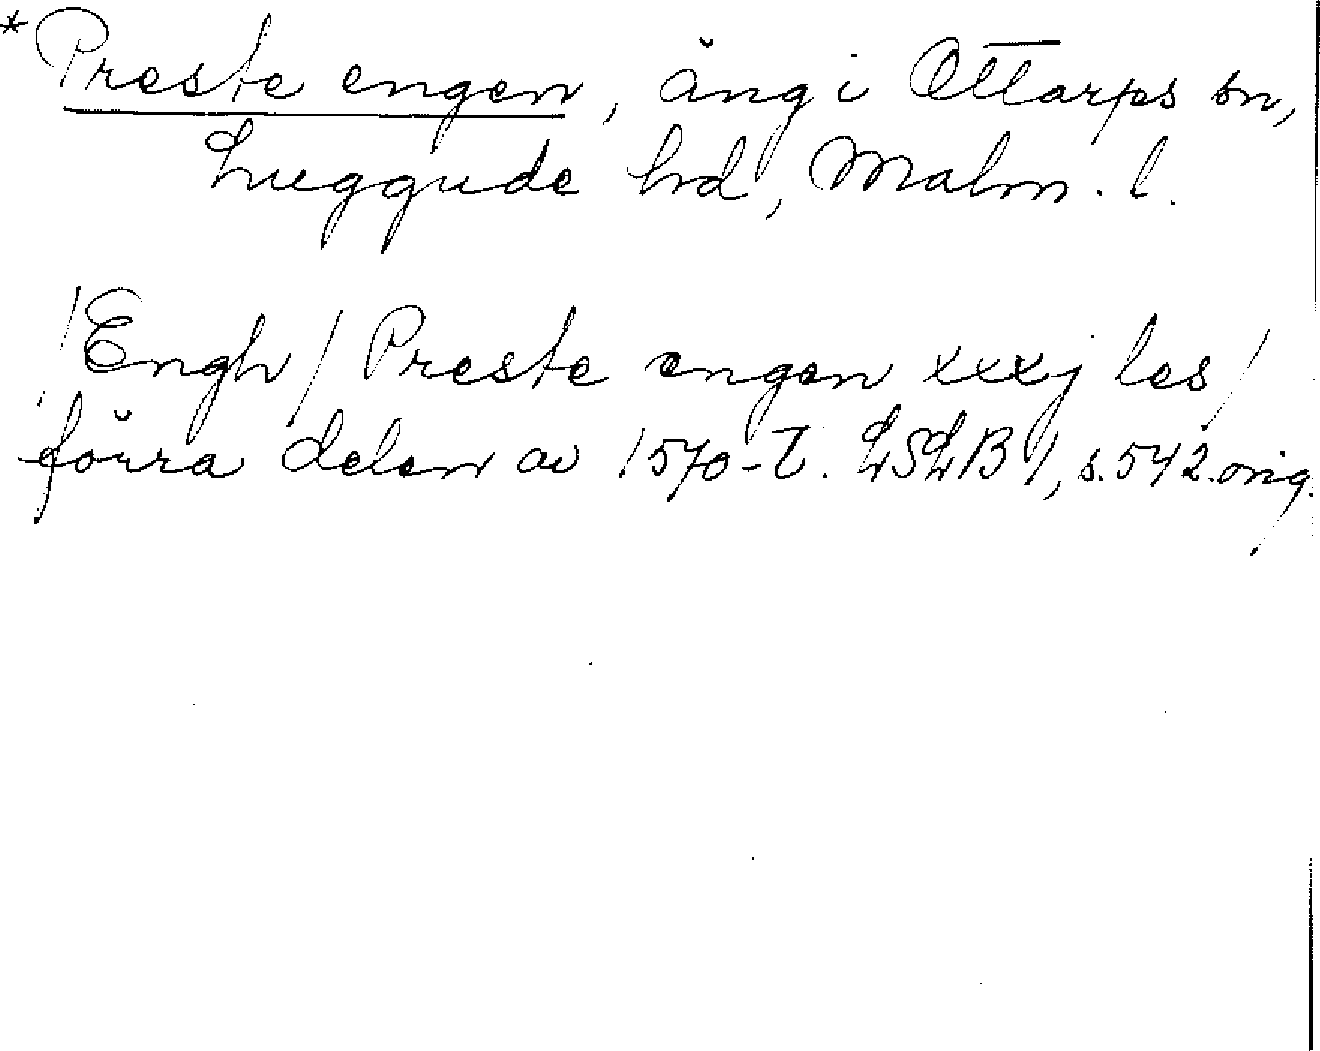 *Preste engen, äng i Ottarps sn,
Luggude hd, Malm. l.
/Engh/ Preste engen xxxj les/
förra delen av 1570-t. LSLB 1, s. 542. orig.